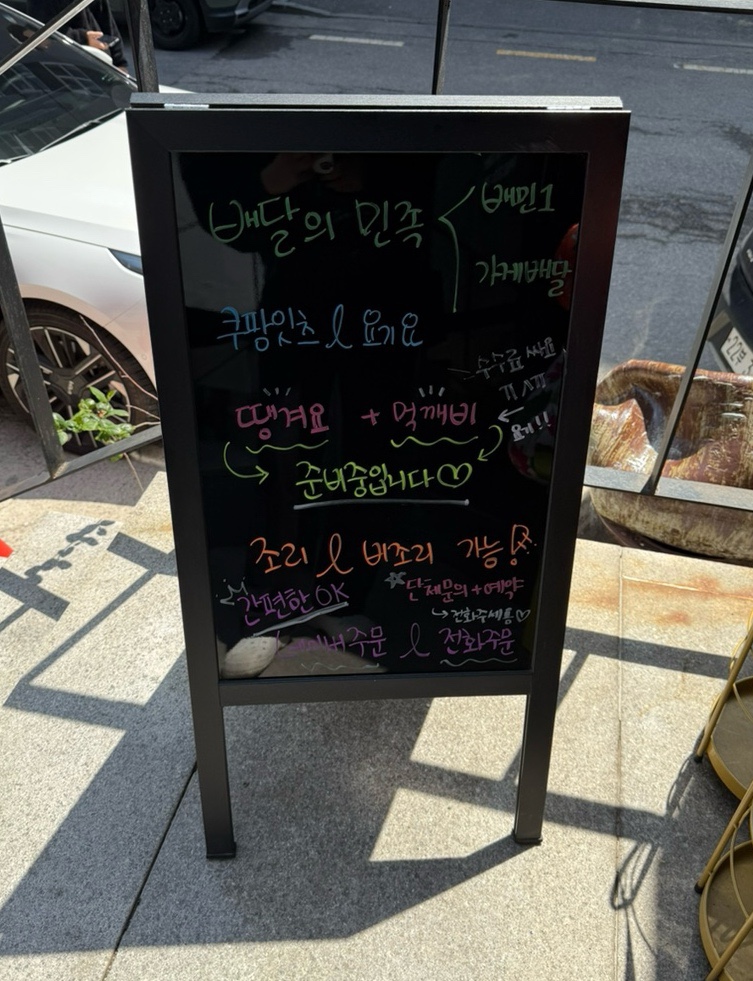 배달의 민족 < 배민1
가게배달
쿠팡잇츠 & 요기요
수수료 싸요
땡겨요 + 먹깨비
요기!!
준비중입니다♡
조리 & 비조리 가능!
간편한 OK
단체문의 + 예약
→ 전화주세용♡
네이버주문 & 전화주문